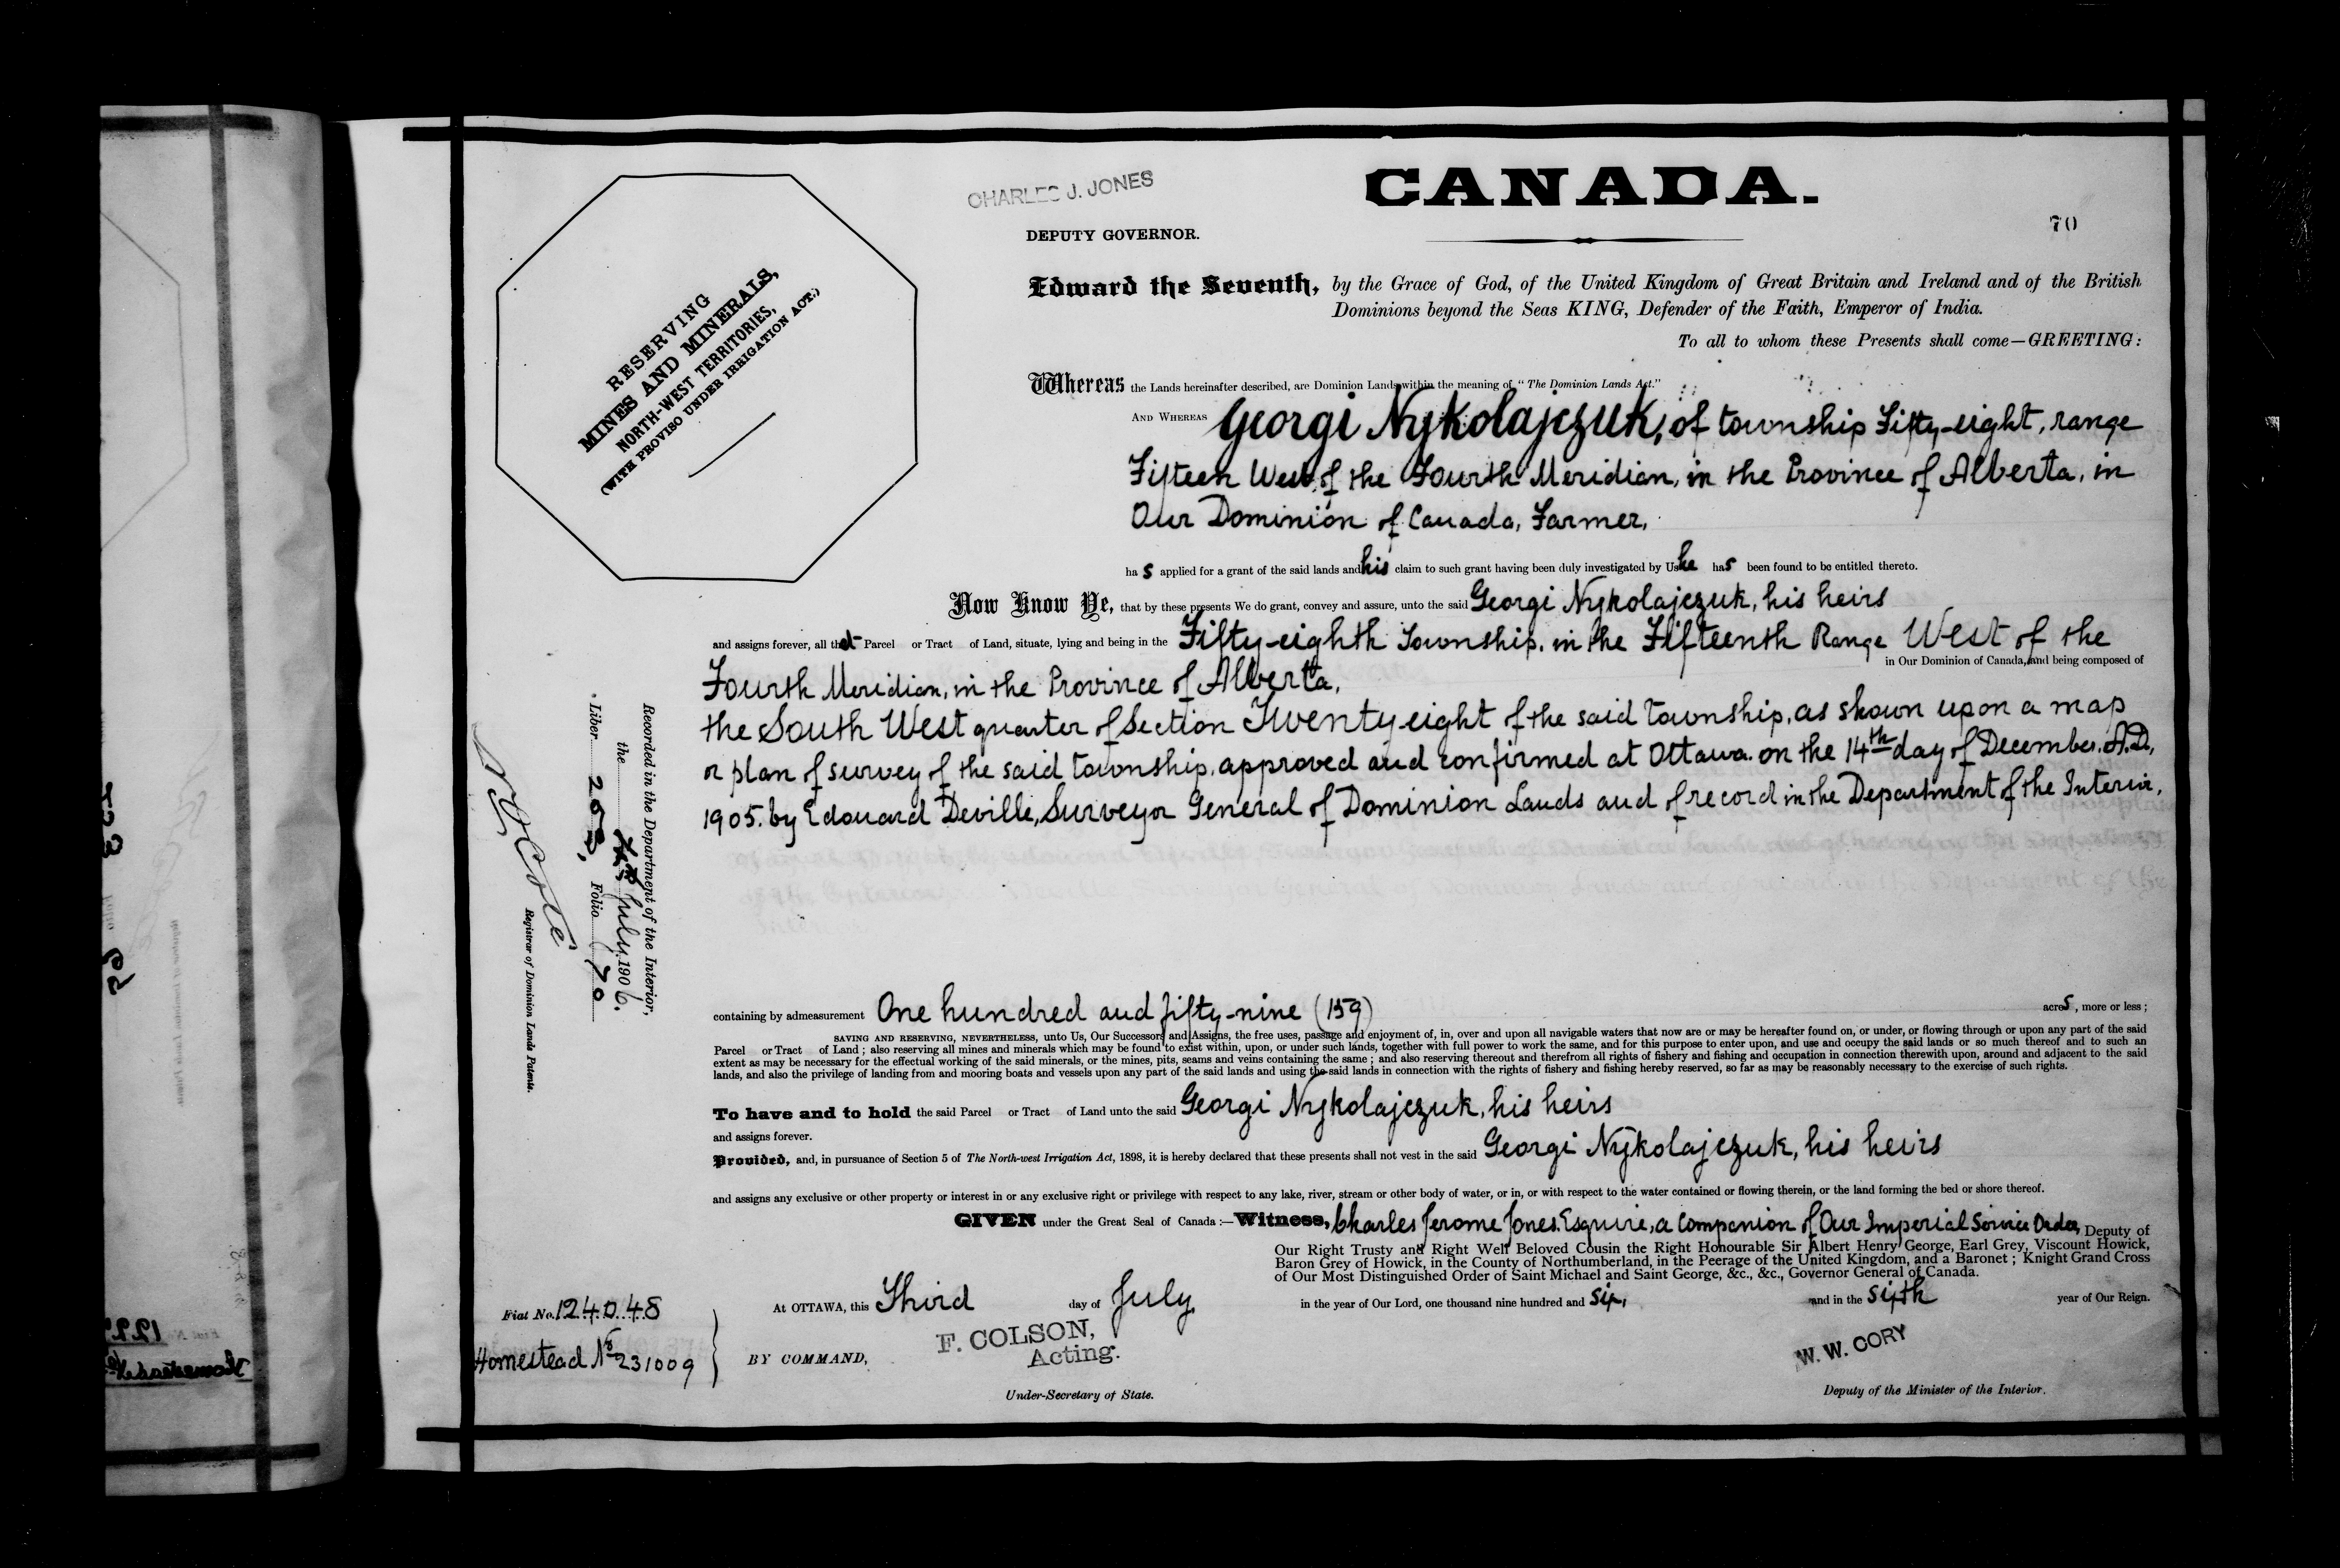 CHARLES J. JONES
CANADA.
DEPUTY GOVERNOR.
70
RESERVING
MINES AND MINERALS,
NORTH-WEST TERRITORIES,
(WITH PROVISO UNDER IRRIGATION ACT.)
Edward the Seventh, by the Grace of God, of the United Kingdom of Great Britain and Ireland and of the British
Dominions beyond the Seas KING, Defender of the Faith, Emperor of India.
To all to whom these Presents shall come—GREETING:
Whereas the Lands hereinafter described, are Dominion Lands within the meaning of "The Dominion Lands Act."
AND WHEREAS Georgi Nykolajczuk, of township Fifty-eight, range
Fifteen West of the Fourth Meridian, in the Province of Alberta, in
Our Dominion of Canada, Farmer,
has applied for a grant of the said lands and his claim to such grant having been duly investigated by Us he has been found to be entitled thereto.
Now Know Ye, that by these presents We do grant, convey and assure, unto the said Georgi Nykolajczuk, his heirs
and assigns forever, all that Parcel or Tract of Land, situate, lying and being in the Fifty-eighth Township, in the Fifteenth Range West of the
in Our Dominion of Canada, and being composed of
Fourth Meridian, in the Province of Alberta,
the South West quarter of Section Twenty eight of the said township, as shown upon a map
or plan of survey of the said township, approved and confirmed at Ottawa. on the 14th day of December, A.D.,
1905. by Edouard Deville, Surveyor General of Dominion Lands and of record in the Department of the Interior,
Recorded in the Department of the Interior,
the July, 1906.
Liber Folio 70
Registrar of Dominion Lands Patents.
containing by admeasurement One hundred and fifty-nine (159) acres, more or less;
SAVING AND RESERVING, NEVERTHELESS, unto Us, Our Successors and Assigns, the free uses, passage and enjoyment of, in, over and upon all navigable waters that now are or may be hereafter found on, or under, or flowing through or upon any part of the said
Parcel or Tract of Land; also reserving all mines and minerals which may be found to exist within, upon, or under such lands, together with full power to work the same, and for this purpose to enter upon, and use and occupy the said lands or so much thereof and to such an
extent as may be necessary for the effectual working of the said minerals, or the mines, pits, seams and veins containing the same; and also reserving thereout and therefrom all rights of fishery and fishing and occupation in connection therewith upon, around and adjacent to the said
lands, and also the privilege of landing from and mooring boats and vessels upon any part of the said lands and using the said lands in connection with the rights of fishery and fishing hereby reserved, so far as may be reasonably necessary to the exercise of such rights.
To have and to hold the said Parcel or Tract of Land unto the said Georgi Nykolajczuk, his heirs
and assigns forever.
Provided, and, in pursuance of Section 5 of The North-west Irrigation Act, 1898, it is hereby declared that these presents shall not vest in the said Georgi Nykolajczuk, his heirs
and assigns any exclusive or other property or interest in or any exclusive right or privilege with respect to any lake, river, stream or other body of water, or in, or with respect to the water contained or flowing therein, or the land forming the bed or shore thereof.
GIVEN under the Great Seal of Canada:—Witness, Charles Jerome Jones, Esquire, a Companion of Our Imperial Service Order, Deputy of
Our Right Trusty and Right Well Beloved Cousin the Right Honourable Sir Albert Henry George, Earl Grey, Viscount Howick,
Baron Grey of Howick, in the County of Northumberland, in the Peerage of the United Kingdom, and a Baronet; Knight Grand Cross
of Our Most Distinguished Order of Saint Michael and Saint George, &c., &c., Governor General of Canada.
At OTTAWA, this Third day of July in the year of Our Lord, one thousand nine hundred and six, and in the sixth year of Our Reign.
Fiat No. 124048
Homestead No 231009
BY COMMAND,
F. COLSON,
Acting.
Under-Secretary of State.
W. W. CORY
Deputy of the Minister of the Interior.